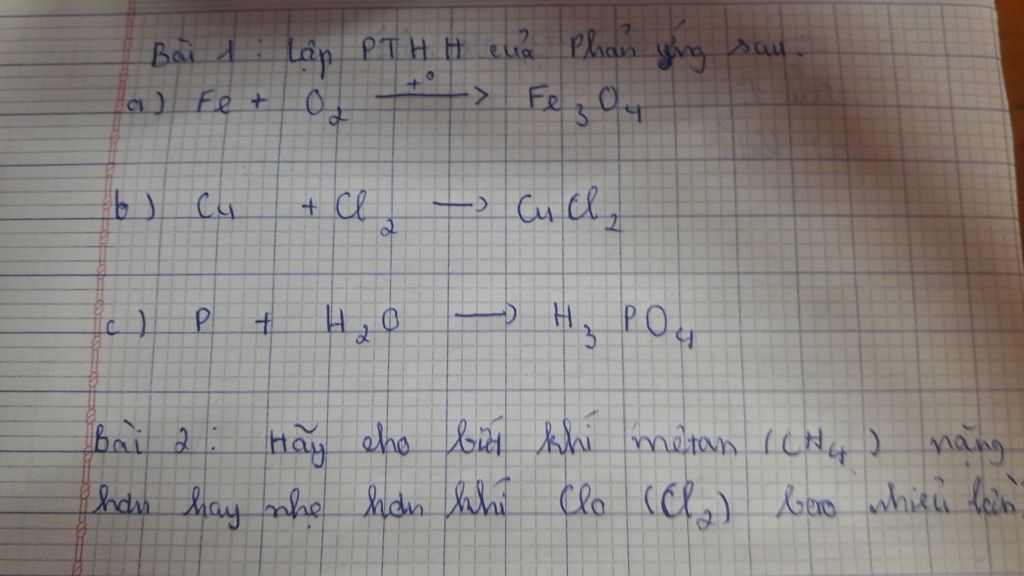 Bài 1 : Lập PTHH của Phản ứng sau:
a) Fe + O₂ —t°→ Fe₃O₄
b) Cu + Cl₂ → CuCl₂
c) P + H₂O → H₃PO₄
Bài 2 : Hãy cho biết khí mêtan (CH₄) nặng
hơn hay nhẹ hơn khí Clo (Cl₂) bao nhiêu lần.